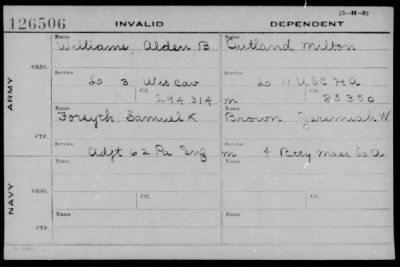 (3-H-3)
126506 INVALID DEPENDENT
Name Name
Williams, Alden B Outland, Milton
ORIG.
Service Service
L 3 Wis Cav L 11 U S C H A
Ctf. Ctf.
294314 m 85350
ARMY
Name Name
Forsyth, Samuel K Brown Jeremiah W
CTF.
Service Service
Adjt 62 Pa Inf m 4 Batty Mass L A
Name Name
ORIG.
Service Service
Ctf. Ctf.
NAVY
Name Name
CTF.
Service Service